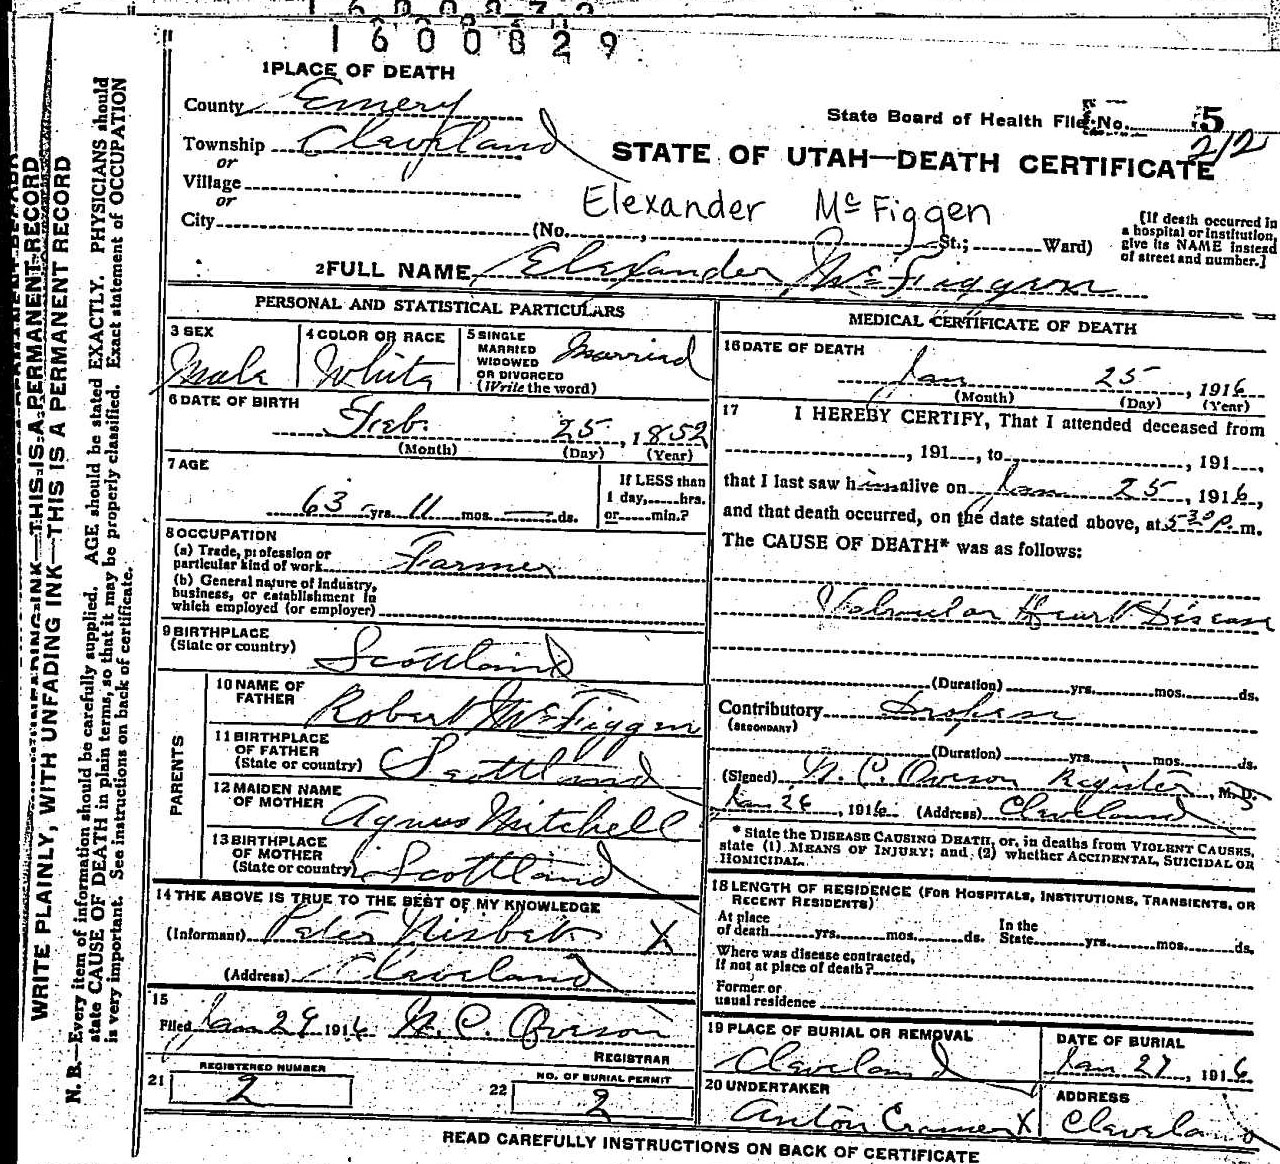 1600829
1 PLACE OF DEATH
County Emery
State Board of Health File No. 5
Township Cleveland
212
or
STATE OF UTAH—DEATH CERTIFICATE
Village
or
Elexander McFiggen
City (No. , St.; Ward)
[If death occurred in
a hospital or institution,
give its NAME instead
of street and number.]
2 FULL NAME Elexander McFiggen
PERSONAL AND STATISTICAL PARTICULARS
3 SEX
Male
4 COLOR OR RACE
White
5 SINGLE
MARRIED
WIDOWED
OR DIVORCED
(Write the word)
Married
6 DATE OF BIRTH
Feb. 25, 1852
(Month) (Day) (Year)
7 AGE
63 yrs. 11 mos. — ds.
If LESS than
1 day, hrs.
or min.?
8 OCCUPATION
(a) Trade, profession or
particular kind of work Farmer
(b) General nature of Industry,
business, or establishment in
which employed (or employer)
9 BIRTHPLACE
(State or country) Scottland
PARENTS
10 NAME OF
FATHER Robert McFiggen
11 BIRTHPLACE
OF FATHER
(State or country) Scottland
12 MAIDEN NAME
OF MOTHER Agnus Mitchell
13 BIRTHPLACE
OF MOTHER
(State or country) Scottland
14 THE ABOVE IS TRUE TO THE BEST OF MY KNOWLEDGE
(Informant) Peter Nisbet X
(Address) Cleveland
15
Filed Jan 29 1916 N. C. Oveson
REGISTRAR
21 REGISTERED NUMBER
2
22 NO. OF BURIAL PERMIT
2
MEDICAL CERTIFICATE OF DEATH
16 DATE OF DEATH
Jan 25, 1916
(Month) (Day) (Year)
17 I HEREBY CERTIFY, That I attended deceased from
, 191 , to , 191 ,
that I last saw him alive on Jan 25, 1916,
and that death occurred, on the date stated above, at 5 30 P. m.
The CAUSE OF DEATH* was as follows:
Valvular Heart Disease
(Duration) yrs. mos. ds.
Contributory Dropsy
(SECONDARY)
(Duration) yrs. mos. ds.
(Signed) N. C. Oveson Register, M. D.
Jan 26, 1916 (Address) Cleveland
* State the DISEASE CAUSING DEATH, or, in deaths from VIOLENT CAUSES,
state (1) MEANS OF INJURY; and (2) whether ACCIDENTAL, SUICIDAL OR
HOMICIDAL.
18 LENGTH OF RESIDENCE (FOR HOSPITALS, INSTITUTIONS, TRANSIENTS, OR
RECENT RESIDENTS)
At place
of death yrs. mos. ds.
In the
State yrs. mos. ds.
Where was disease contracted,
if not at place of death?
Former or
usual residence
19 PLACE OF BURIAL OR REMOVAL
Cleveland
DATE OF BURIAL
Jan 27, 1916
20 UNDERTAKER
Anton Cramer X
ADDRESS
Cleveland
READ CAREFULLY INSTRUCTIONS ON BACK OF CERTIFICATE
WRITE PLAINLY, WITH UNFADING INK—THIS IS A PERMANENT RECORD
N. B.—Every item of information should be carefully supplied. AGE should be stated EXACTLY. PHYSICIANS should
state CAUSE OF DEATH in plain terms, so that it may be properly classified. Exact statement of OCCUPATION
is very important. See instructions on back of certificate.